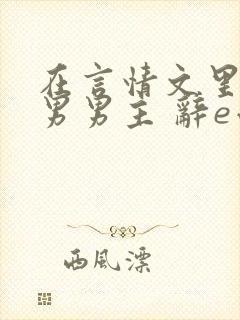 在言情文里
男男主 辭e
西風漂